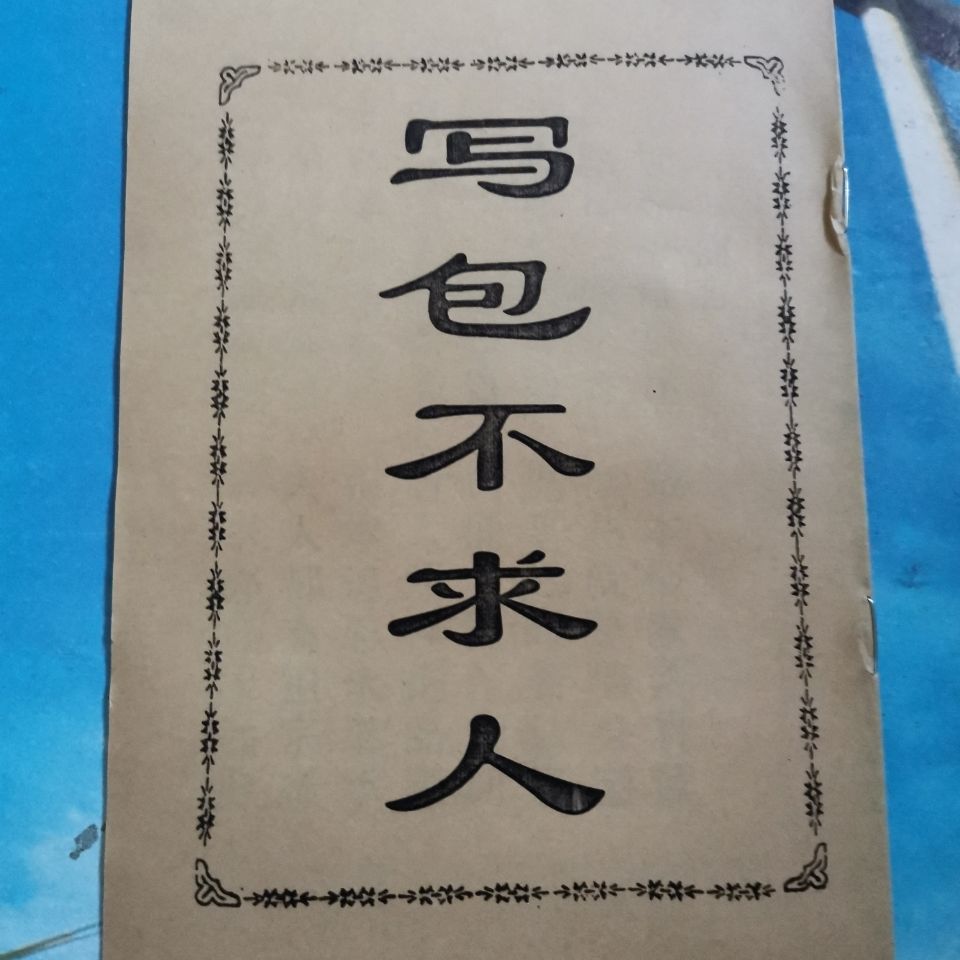 写包不求人